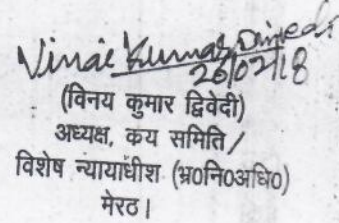 Vinai Kumar Dwivedi
26/02/18
(विनय कुमार द्विवेदी)
अध्यक्ष, कय समिति /
विशेष न्यायाधीश (भ्र0नि0अधि0)
मेरठ।